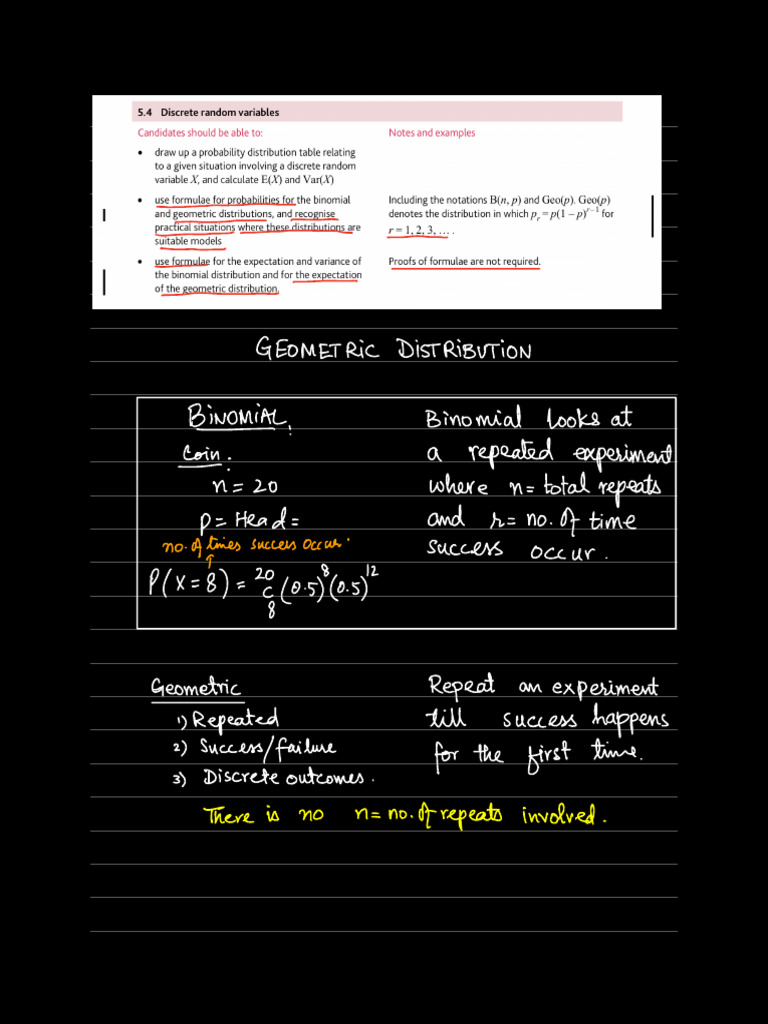 5.4 Discrete random variables
Candidates should be able to:
• draw up a probability distribution table relating
to a given situation involving a discrete random
variable X, and calculate E(X) and Var(X)
• use formulae for probabilities for the binomial
and geometric distributions, and recognise
practical situations where these distributions are
suitable models
• use formulae for the expectation and variance of
the binomial distribution and for the expectation
of the geometric distribution.
Notes and examples
Including the notations B(n, p) and Geo(p). Geo(p)
denotes the distribution in which pᵣ = p(1 – p)ʳ⁻¹ for
r = 1, 2, 3, … .
Proofs of formulae are not required.
GEOMETRIC DISTRIBUTION
BINOMIAL.
Coin:
n = 20
p = Head =
no. of times success occur.
P(X = 8) = ²⁰C₈ (0.5)⁸ (0.5)¹²
Binomial looks at
a repeated experiment
where n = total repeats
and r = no. of time
success occur.
Geometric
1) Repeated
2) Success/failure
3) Discrete outcomes.
Repeat an experiment
till success happens
for the first time.
There is no n = no. of repeats involved.